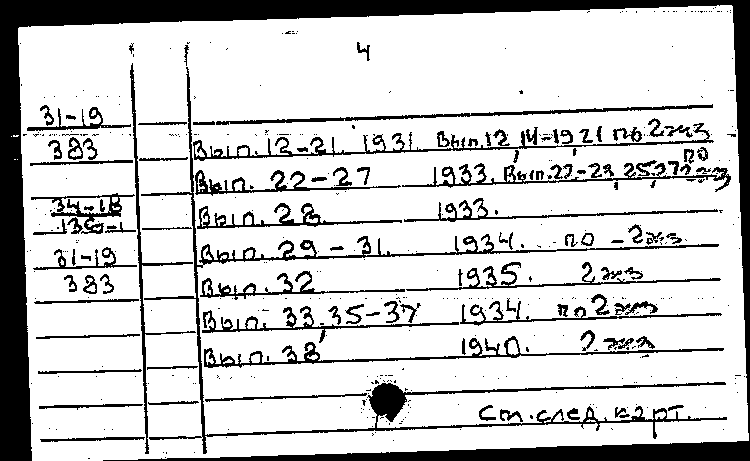 4
31-19
383 Вып. 12-21. 1931 Вып. 12, 14-19, 21 по 2 экз
Вып. 22-27 1933. Вып. 22-23, 25, 27 по 2 экз
34-18 Вып. 28. 1933.
31-19 Вып. 29-31. 1934. по-2 экз
383 Вып. 32 1935. 2 экз
Вып. 33, 35-37 1934. по 2 экз
Вып. 38 1940. 2 экз
См. след. карт.